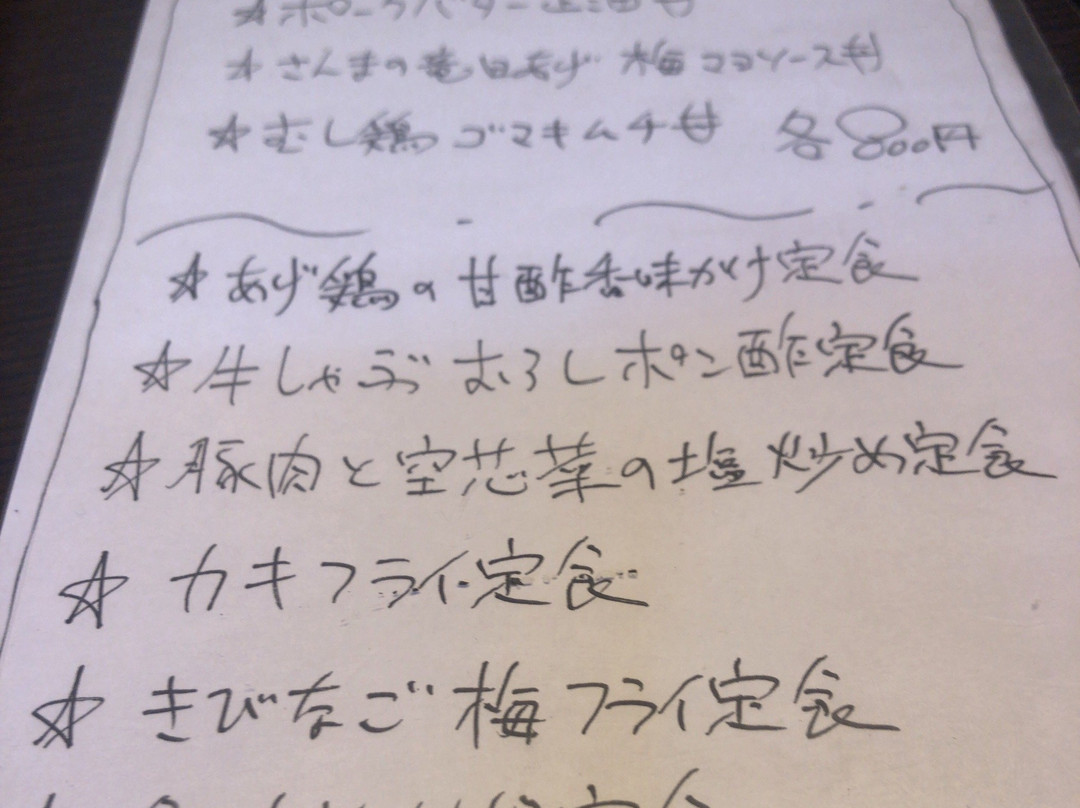 ☆さんまの竜田あげ 梅マヨソース丼
☆むし鶏ゴマキムチ丼 各800円
☆あげ鶏の甘酢香味がけ定食
☆牛しゃぶおろしポン酢定食
☆豚肉と空芯菜の塩炒め定食
☆カキフライ定食
☆きびなご梅フライ定食